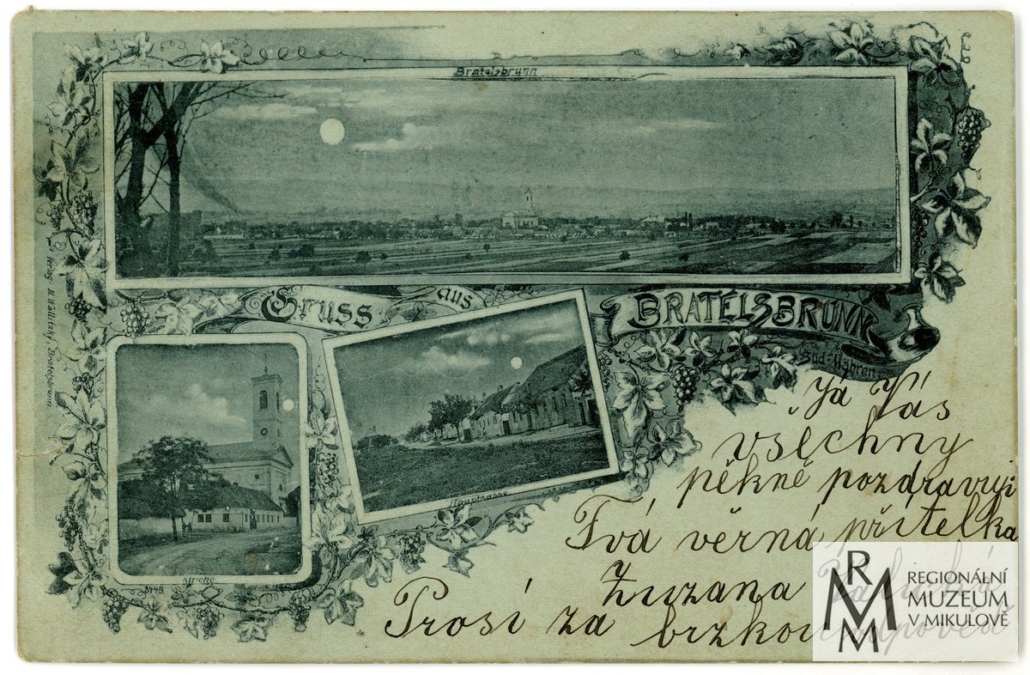 Bratelsbrunn
Gruss aus BRATELSBRUNN
Süd-Mähren
Verlag
Bratelsbrunn
Kirche
Hauptstrasse
Já Vás
všechny
pěkně pozdravuji
Tvá věrná přítelka
Zuzana
Prosí za brzkou odpověď
REGIONÁLNÍ
MUZEUM
V MIKULOVĚ
RMM